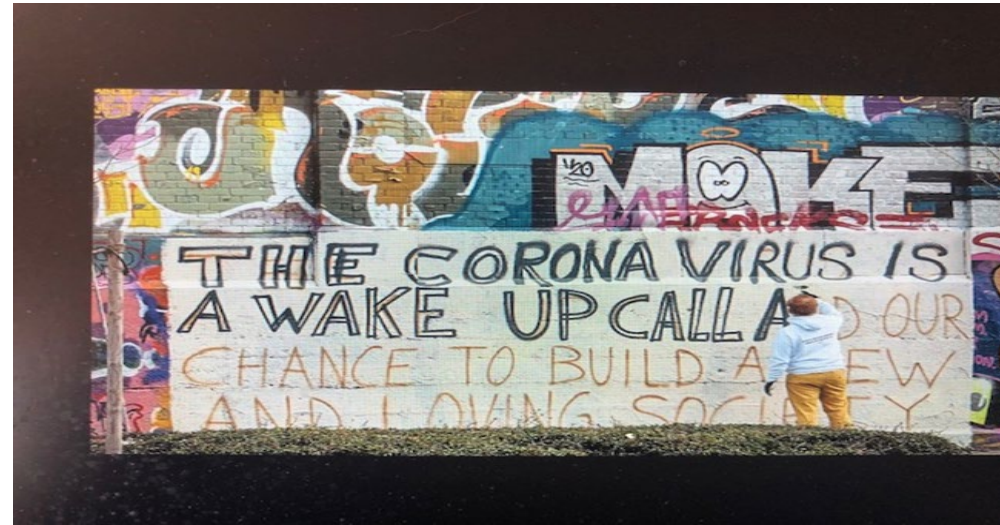 MOKE
THE CORONA VIRUS IS
A WAKE UP CALL A D OUR
CHANCE TO BUILD A EW
AND LOVING SOCIETY